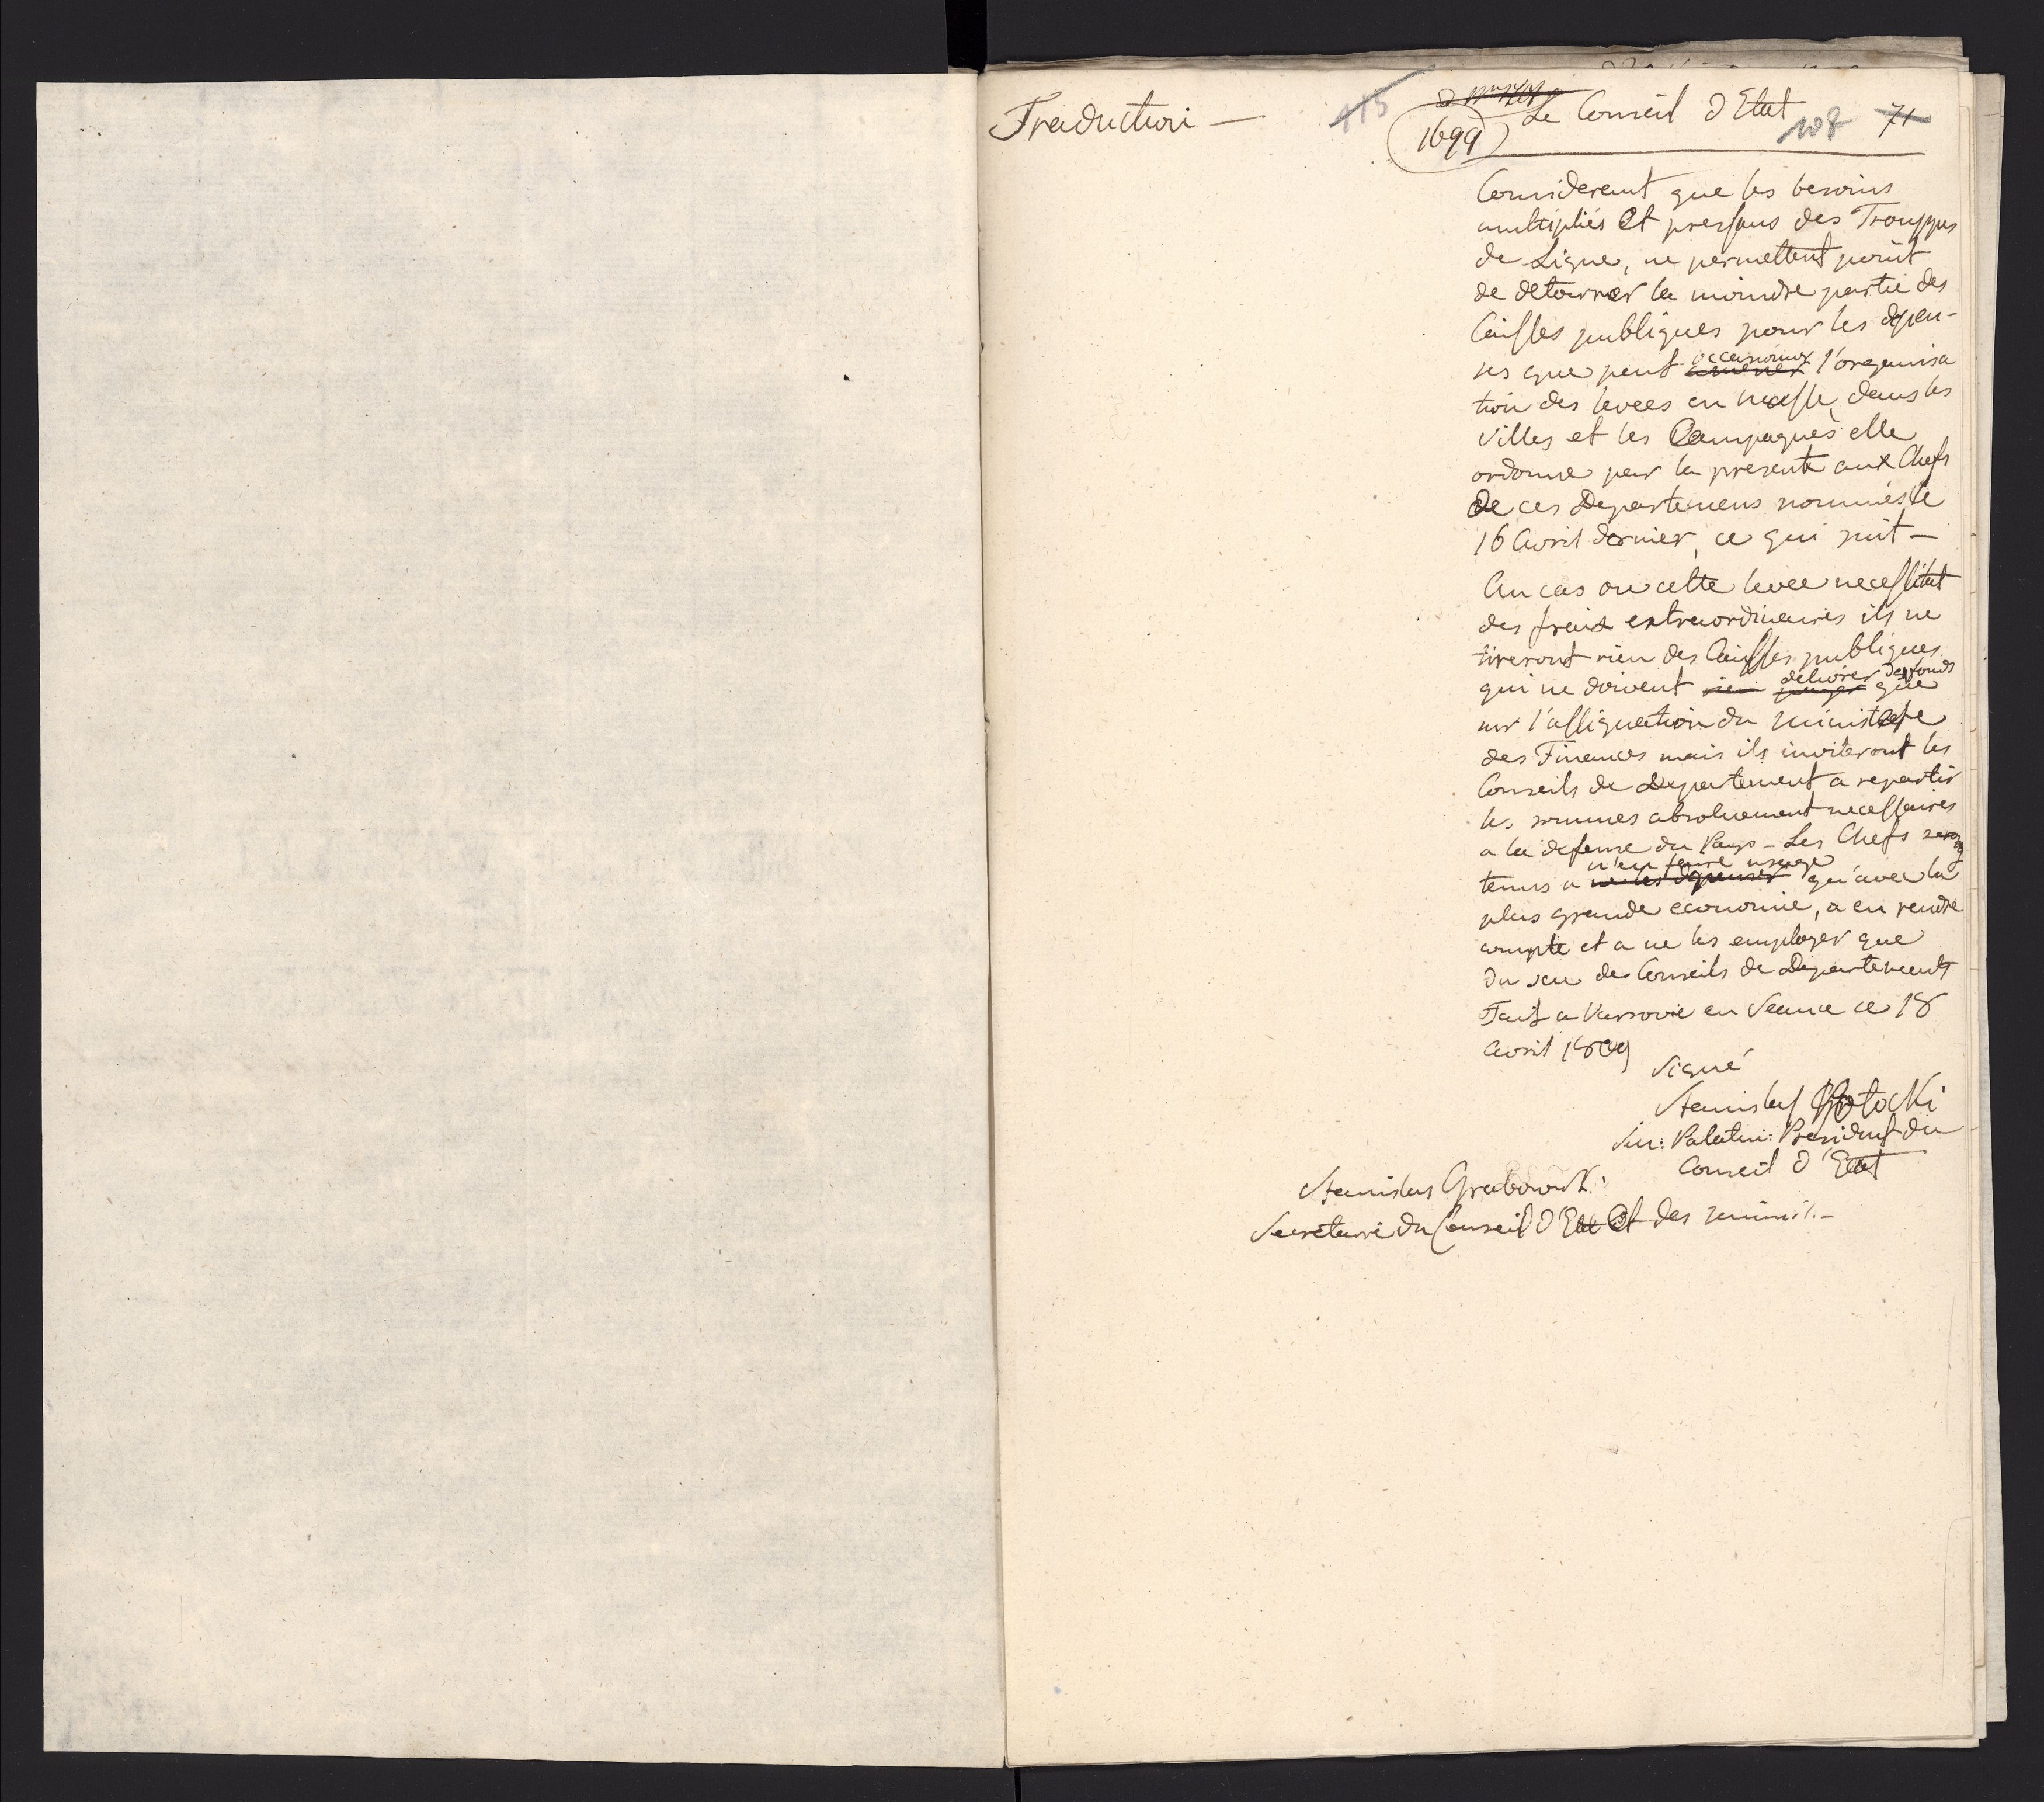 Traduction —
115
1699
Le Conseil d'Etat
108 71
Considerant que les besoins
multipliés et pressans des Trouppes
de Ligne, ne permettent point
de detourner la moindre partie des
Caisses publiques pour les depen-
ses que peut amener occasionner l'organisa
tion des levees en masse, dans les
villes et les Campagnes elle
ordonne par la presente aux Chefs
de ces Departemens nommés le
16 Avril dernier, ce qui suit —
Au cas ou cette levee necessitat
des fraix extraordinaires ils ne
tireront rien des Caisses publiques
qui ne doivent rien payer délivrer des fonds que
sur l'assignation du ministere
des Finances mais ils inviteront les
Conseils de Departement a repartir
les sommes absolument necessaires
a la defense du Pays — Les Chefs seront
tenus a ne les depenser n'en faire usage qu'avec la
plus grande economie, a en rendre
compte et a ne les employer que
du sçu des Conseils de Departements
Fait a Varsovie en Seance ce 18
Avril 1809
Signé
Stanislas Potocki
Sen: Palatin: President du
Conseil d'Etat
Stanislas Grabowski
Secretaire du Conseil d'Etat et des minis.—